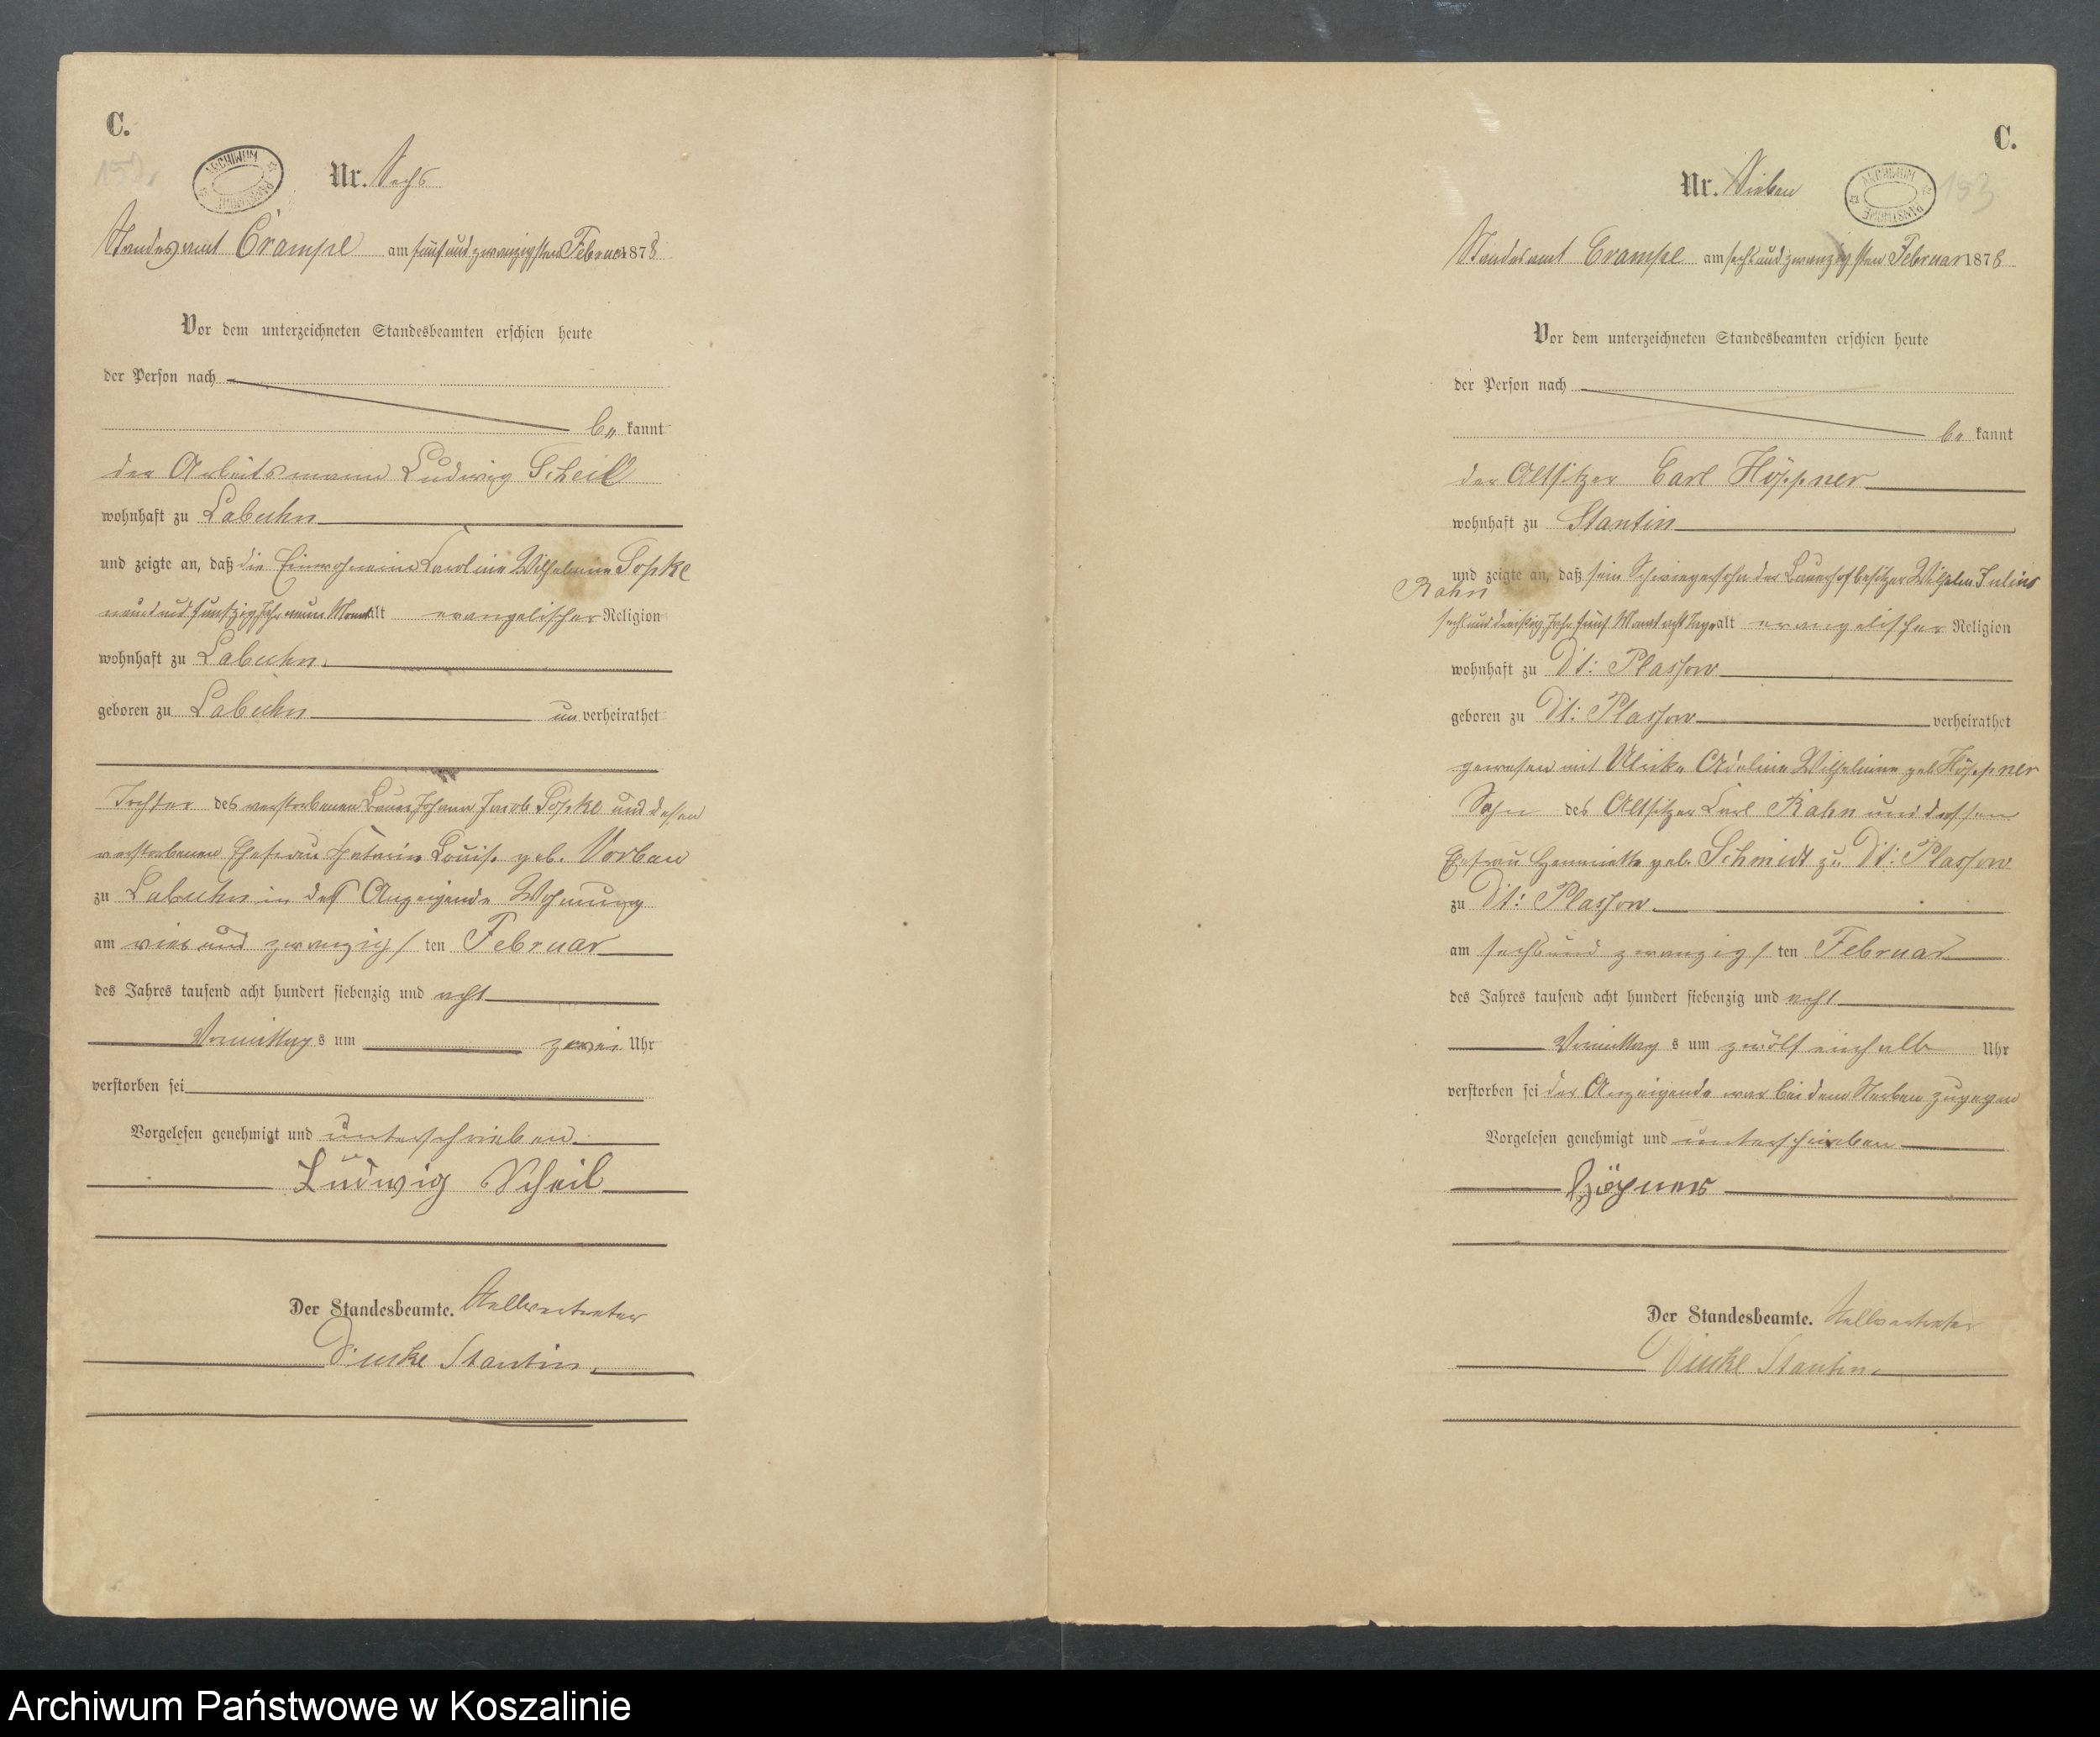 C.
ARCHIWUM PAŃSTWOWE
Nr. Sechs
Standesamt Crampe am fünfundzwanzigsten Februar 1878
Vor dem unterzeichneten Standesbeamten erschien heute
der Person nach
be kannt
der Arbeitsmann Ludwig Scheil
wohnhaft zu Labuhn
und zeigte an, daß die Einwohnerin Caroline Wilhelmine Popke
neunundfunfzig Jahr neun Monat alt evangelischer Religion
wohnhaft zu Labuhn.
geboren zu Labuhn un verheirathet
Tochter des verstorbenen Bauer Johann Jacob Popke und dessen
verstorbenen Ehefrau Louise geb. Vorbau
zu Labuhn in des Anzeigende Wohnung
am vier und zwanzigs ten Februar
des Jahres tausend acht hundert siebenzig und acht
Vormittag s um zwei Uhr
verstorben sei
Vorgelesen genehmigt und unterschrieben.
Ludwig Scheil
Der Standesbeamte. Stellvertreter
Stantin.
C.
153
ARCHIWUM PAŃSTWOWE
Nr. Sieben
Standesamt Crampe am sechsundzwanzigsten Februar 1878
Vor dem unterzeichneten Standesbeamten erschien heute
der Person nach
be kannt
der Altsitzer Carl Höppner
wohnhaft zu Stantin
und zeigte an, daß sein Schwiegersohn der Bauerhofbesitzer Wilhelm Julius
Rahn
sechsunddreißig Jahr fünf Monat acht Tage alt evangelischer Religion
wohnhaft zu Dt: Plassow
geboren zu Dt: Plassow verheirathet
gewesen mit Ulrike Adeline Wilhelmine geb. Höppner
Sohn des Altsitzer Carl Rahn und dessen
Ehefrau Henriette geb. Schmidt zu Dt: Plassow
zu Dt: Plassow.
am sechsund zwanzigs ten Februar
des Jahres tausend acht hundert siebenzig und acht
Vormittag s um zwölf einhalb Uhr
verstorben sei der Anzeigende war bei dem Sterben zugegen
Vorgelesen genehmigt und unterschrieben
Höpner
Der Standesbeamte. Stellvertreter
Stantin.
Archiwum Państwowe w Koszalinie